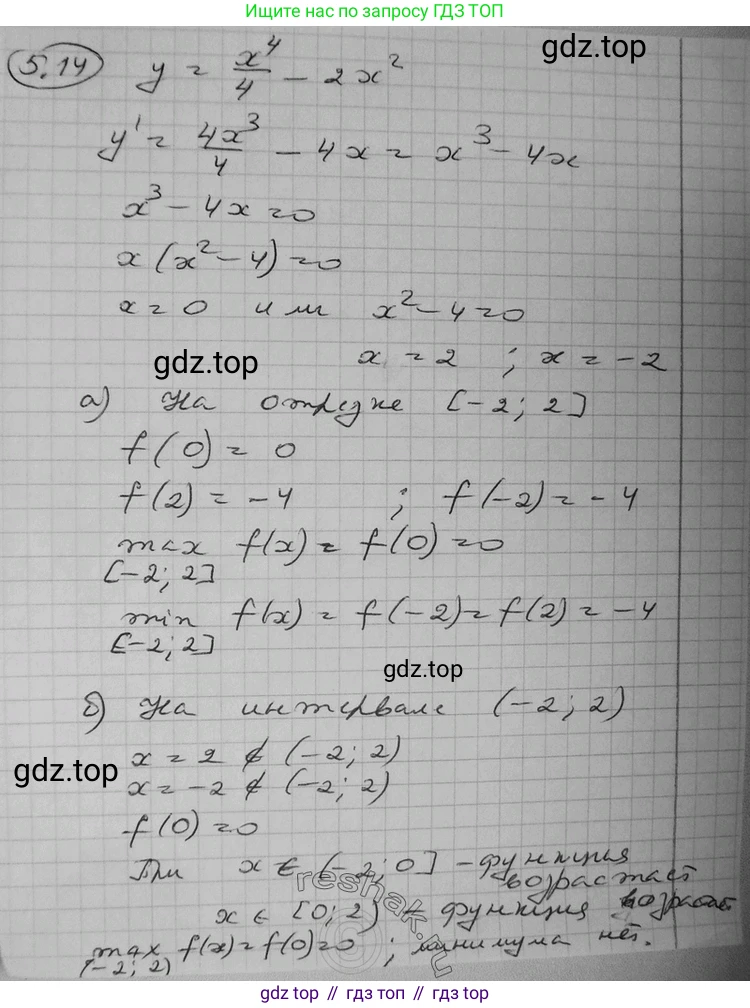 Ищите нас по запросу ГДЗ ТОП
gdz.top
5.14 y = x⁴/4 - 2x²
y' = 4x³/4 - 4x = x³ - 4x
x³ - 4x = 0
x(x² - 4) = 0
x = 0 или x² - 4 = 0
gdz.top
x = 2 ; x = -2
а) На отрезке [-2; 2]
f(0) = 0
f(2) = -4 ; f(-2) = -4
max f(x) = f(0) = 0
[-2; 2]
min f(x) = f(-2) = f(2) = -4
[-2; 2]
gdz.top
б) На интервале (-2; 2)
x = 2 ∉ (-2; 2)
gdz.top
x = -2 ∉ (-2; 2)
f(0) = 0
При x ∈ (-2; 0] - функция
возрастает
reshak.ru
x ∈ [0; 2) - функция возрастает
max f(x) = f(0) = 0 ; минимума нет.
(-2; 2)
gdz.top // гдз топ // гдз.top